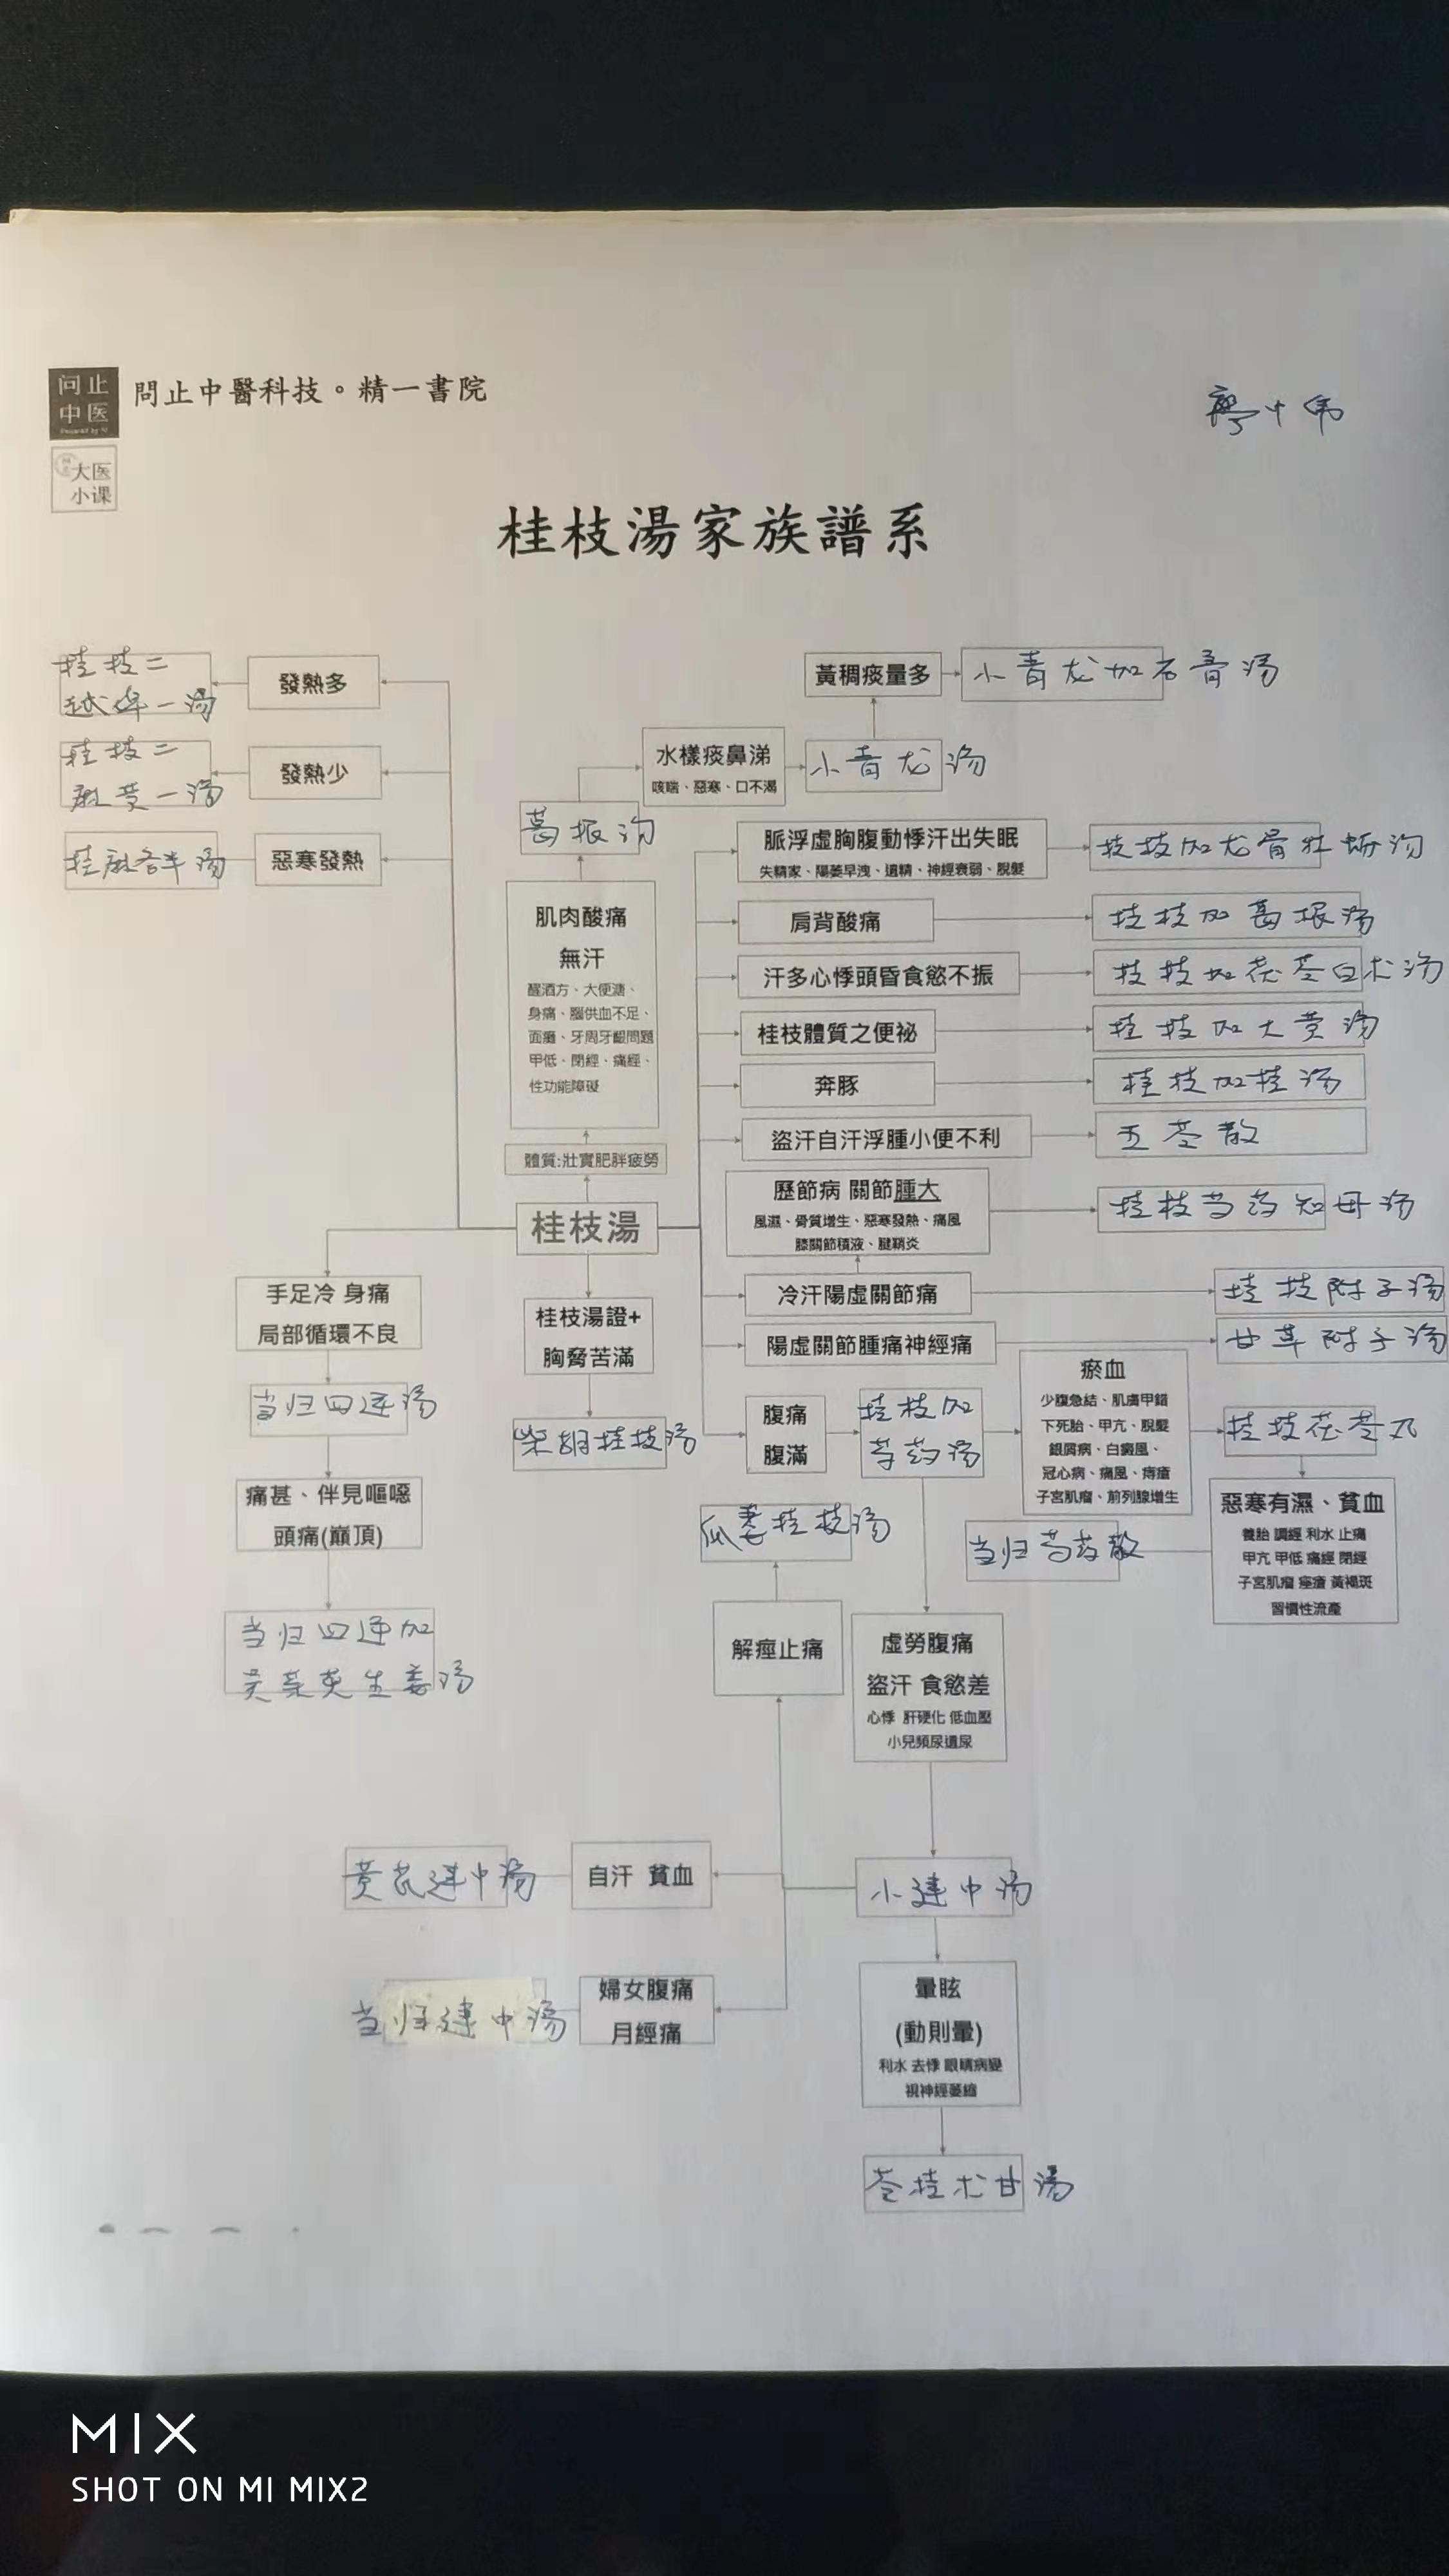 问止
中医
Powered by AI
問止中醫科技。精一書院
大医
小课
桂枝湯家族譜系
桂枝二
越婢一汤
發熱多
桂枝二
麻黄一汤
發熱少
桂麻各半汤
惡寒發熱
黃稠痰量多
小青龙加石膏汤
水樣痰鼻涕
咳喘、惡寒、口不渴
小青龙汤
葛根汤
肌肉酸痛
無汗
醒酒方、大便溏、
身痛、腦供血不足、
面癱、牙周牙齦問題
甲低、閉經、痛經、
性功能障礙
體質:壯實肥胖疲勞
桂枝湯
脈浮虛胸腹動悸汗出失眠
失精家、陽萎早洩、遺精、神經衰弱、脫髮
桂枝加龙骨牡蛎汤
肩背酸痛
桂枝加葛根汤
汗多心悸頭昏食慾不振
桂枝加茯苓白术汤
桂枝體質之便祕
桂枝加大黄汤
奔豚
桂枝加桂汤
盜汗自汗浮腫小便不利
五苓散
歷節病 關節腫大
風濕、骨質增生、惡寒發熱、痛風
膝關節積液、腱鞘炎
桂枝芍药知母汤
冷汗陽虛關節痛
桂枝附子汤
陽虛關節腫痛神經痛
甘草附子汤
手足冷 身痛
局部循環不良
当归四逆汤
痛甚、伴見嘔噁
頭痛(巔頂)
当归四逆加
吴茱萸生姜汤
桂枝湯證+
胸脅苦滿
柴胡桂枝汤
腹痛
腹滿
桂枝加
芍药汤
瘀血
少腹急結、肌膚甲錯
下死胎、甲亢、脫髮
銀屑病、白癜風、
冠心病、痛風、痔瘡
子宮肌瘤、前列腺增生
桂枝茯苓丸
惡寒有濕、貧血
養胎 調經 利水 止痛
甲亢 甲低 痛經 閉經
子宮肌瘤 痤瘡 黃褐斑
習慣性流產
当归芍药散
瓜蒌桂枝汤
解痙止痛
虛勞腹痛
盜汗 食慾差
心悸 肝硬化 低血壓
小兒頻尿遺尿
小建中汤
自汗 貧血
黄芪建中汤
婦女腹痛
月經痛
当归建中汤
暈眩
(動則暈)
利水 去悸 眼睛病變
視神經萎縮
苓桂术甘汤
MIX
SHOT ON MI MIX2